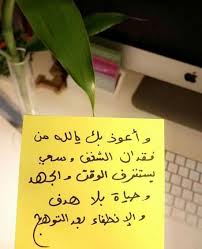 و أعوذ بك يالله من
فقدان الشغف وسعي
يستنزف الوقت والجهد
وحياة بلا هدف
والإنطفاء بعد التوهج